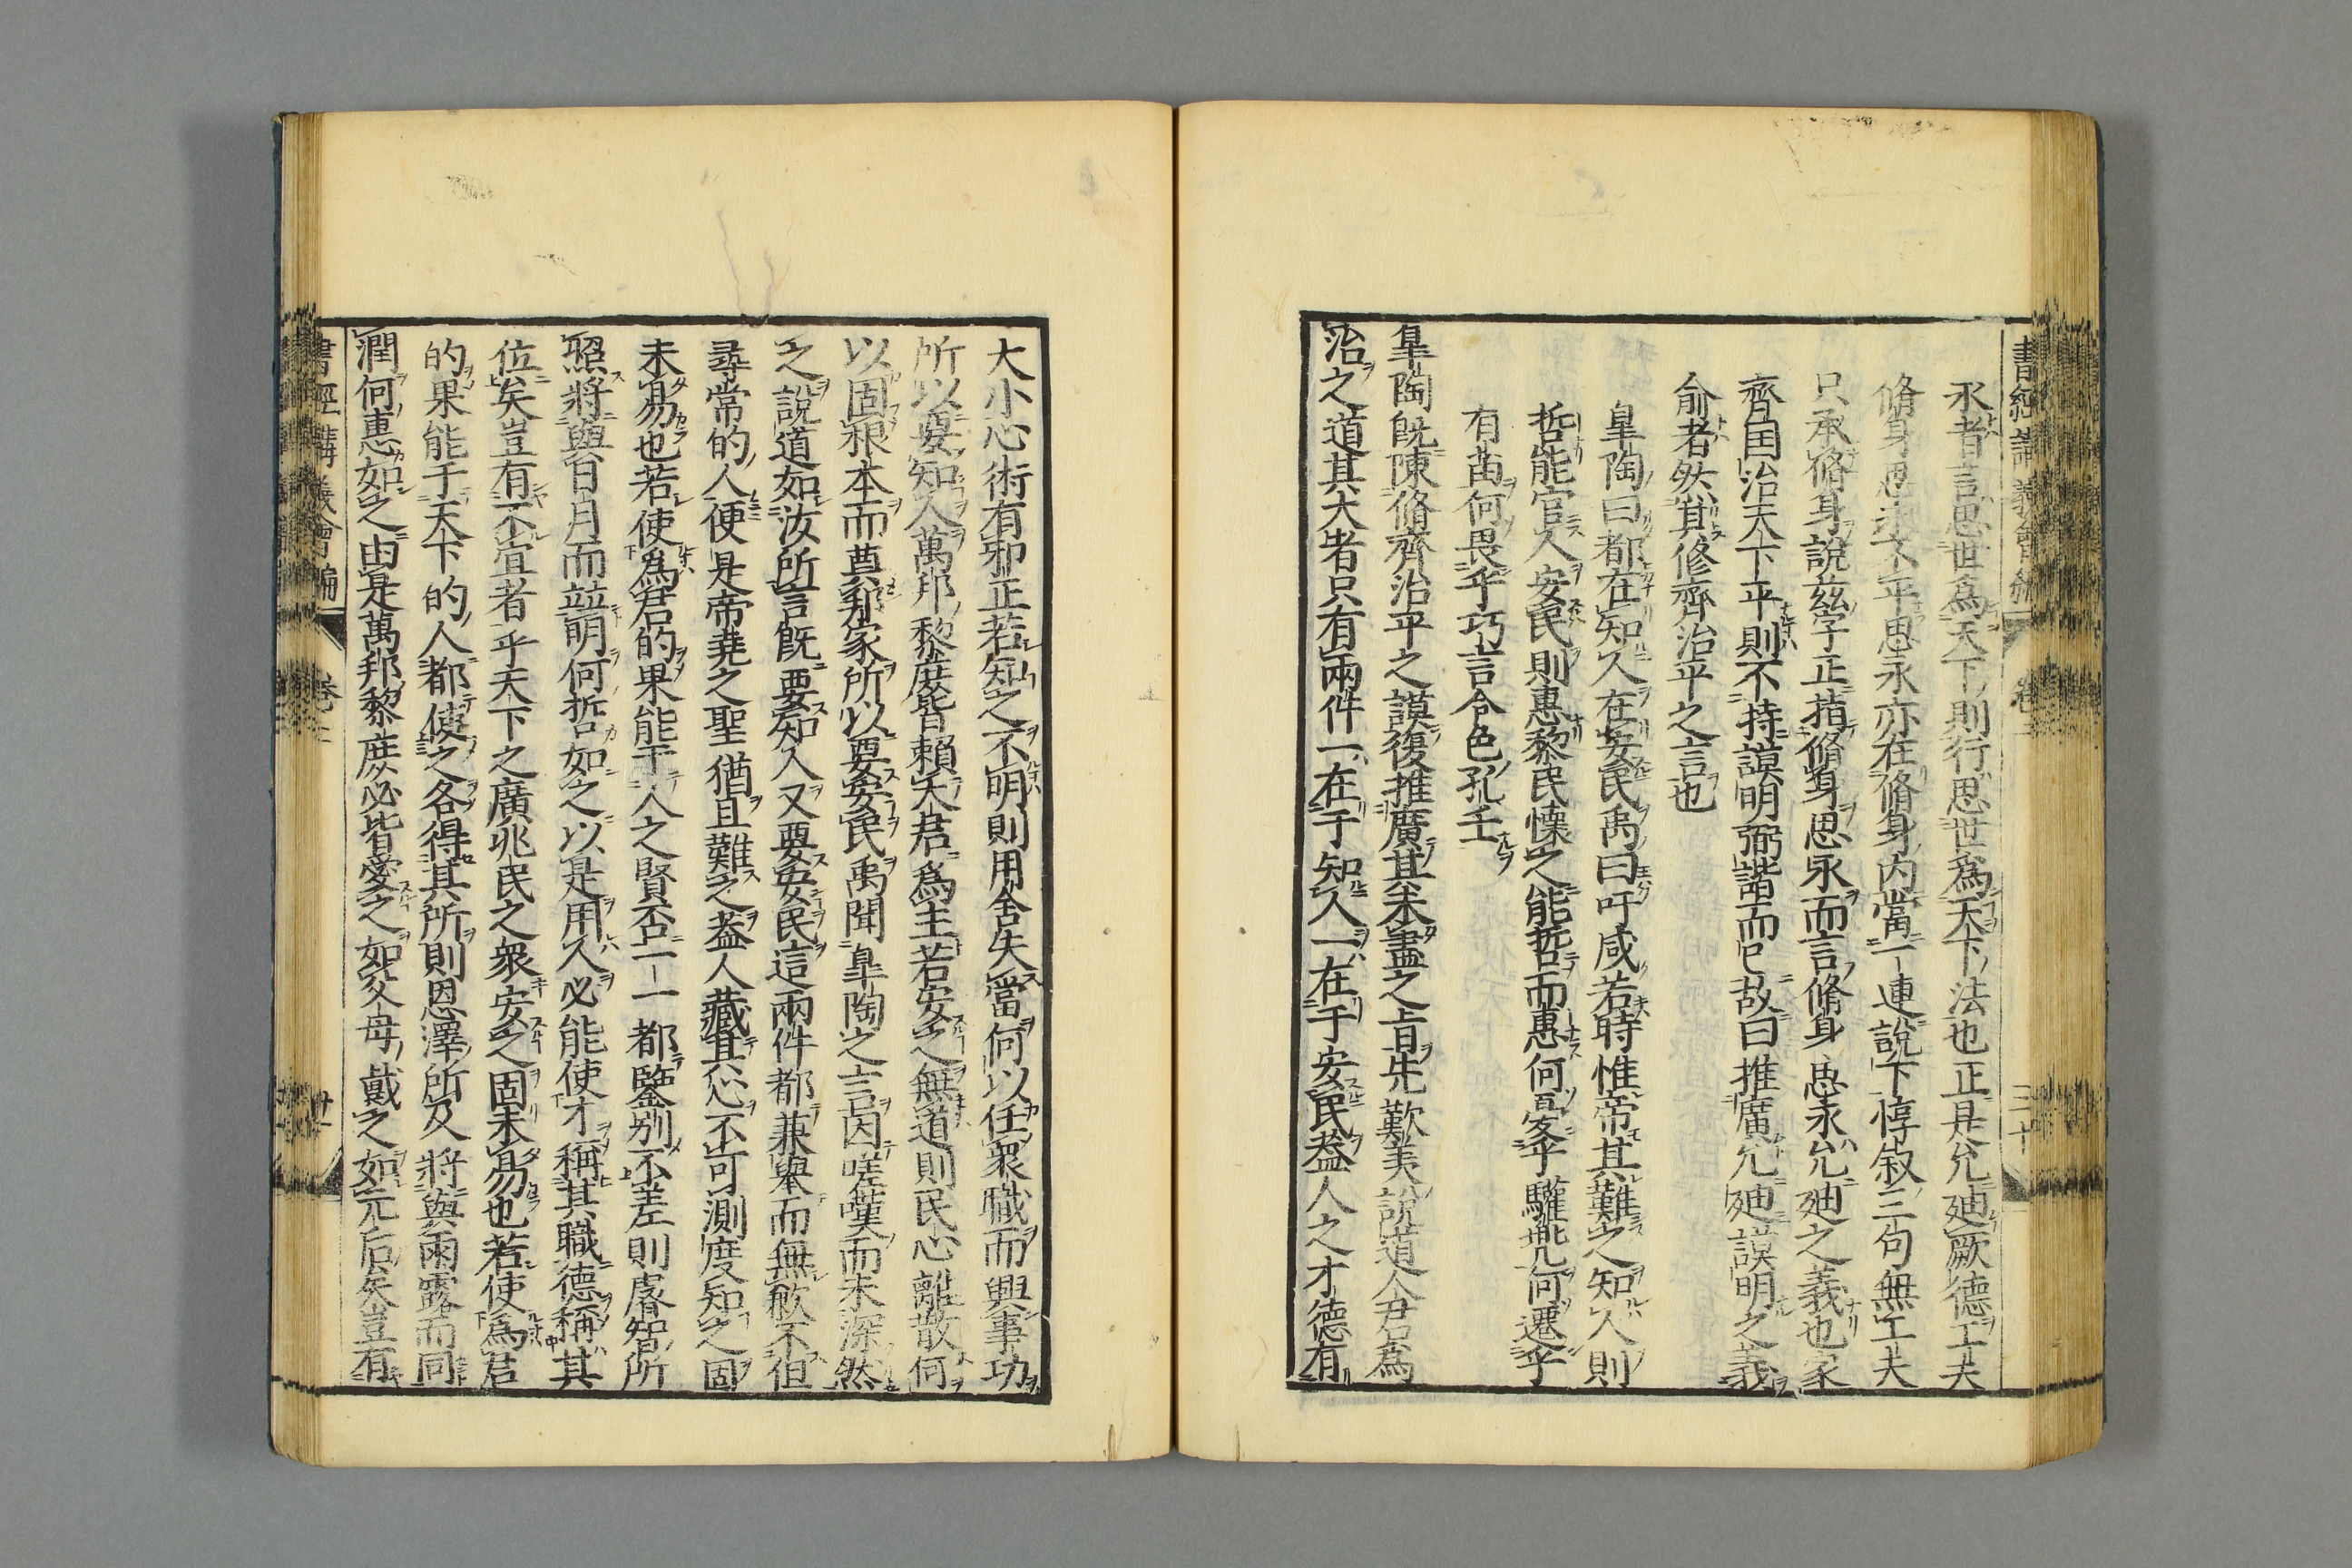 書經講義會編 卷二 三十
永者言思世爲天下則行思世爲天下法也正是允廸厥德工夫
脩身思永不平思永亦在脩身內當一連說下惇叙三句無工夫
只承脩身說玆字正指脩身思永而言脩身思永允廸之義也家
齊國治天下平則不特謨明弼諧而已故曰推廣允廸謨明之義
俞者然其修齊治平之言也
皐陶曰都在知人在安民禹曰吁咸若時惟帝其難之知人則
哲能官人安民則惠黎民懷之能哲而惠何憂乎驩兠何遷乎
有苗何畏乎巧言令色孔壬
皐陶旣陳脩齊治平之謨復推廣其未盡之旨先歎美說道人君爲
治之道其大者只有兩件一在于知人一在于安民葢人之才德有
大小心術有邪正若知之不明則用舍失當何以任衆職而興事功
所以要知人萬邦黎庶皆賴大君爲主若安之無道則民心離散何
以固根本而奠邦家所以要安民禹聞皐陶之言因嗟嘆而未深然
之說道如汝所言旣要知人又要安民這兩件都兼舉而無歉不但
尋常的人便是帝堯之聖猶且難之葢人藏其心不可測度知之固
未易也若使爲君的果能于人之賢否一一都鑒別不差則睿智所
照將與日月而竝明何哲如之以是用人必能使才稱其職德稱其
位矣豈有不宜者乎天下之廣兆民之衆安之固未易也若使爲君
的果能于天下的人都使之各得其所則恩澤所及將與雨露而同
潤何惠如之由是萬邦黎庶必皆愛之如父母戴之如元后矣豈有
書經講義會編 卷二 廿一